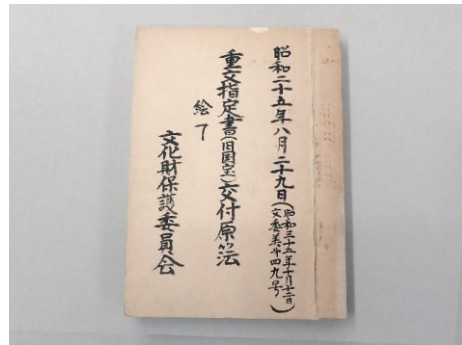 昭和二十五年八月二十九日(昭和三十五年十月十二日
文委美第四九号)
重文指定書(旧国宝)交付原簿
絵了
文化財保護委員会